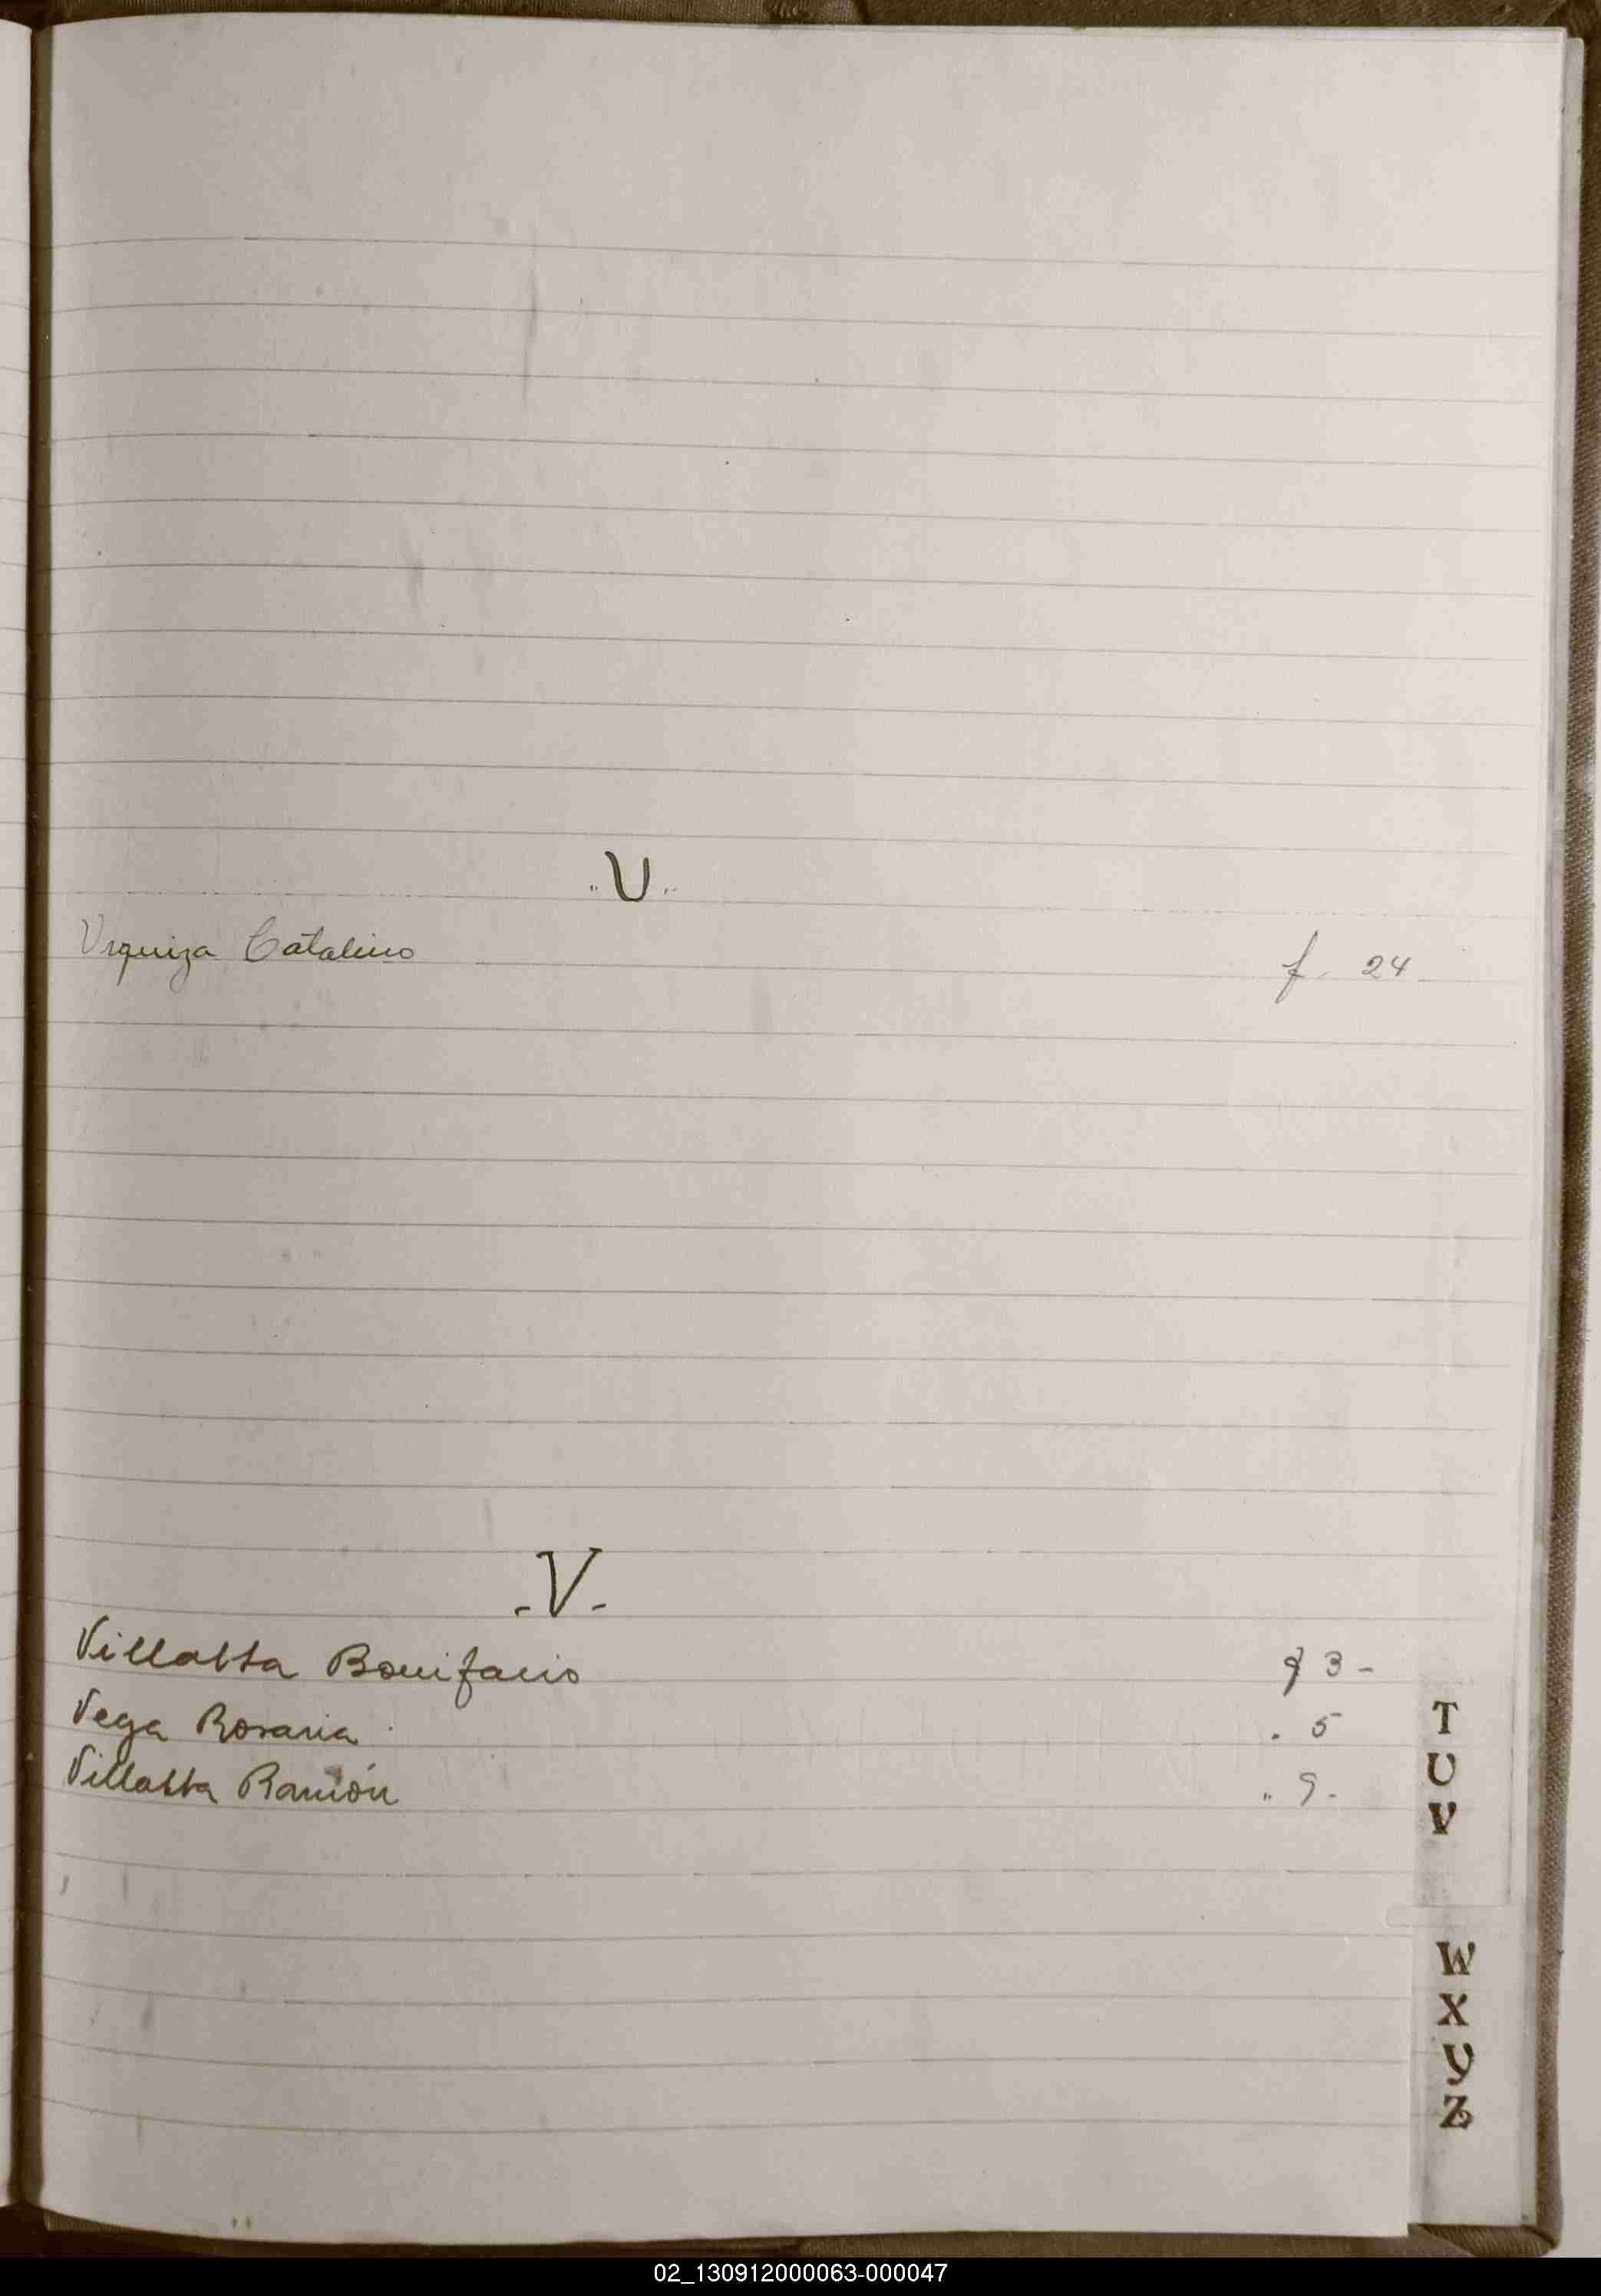 "U"
Urquiza Catalino f. 24
-V-
Villalba Bonifacio f 3-
Vega Rosaria . 5
Villalba Ramón " 9-
T
U
V
W
X
Y
Z
02_130912000063-000047